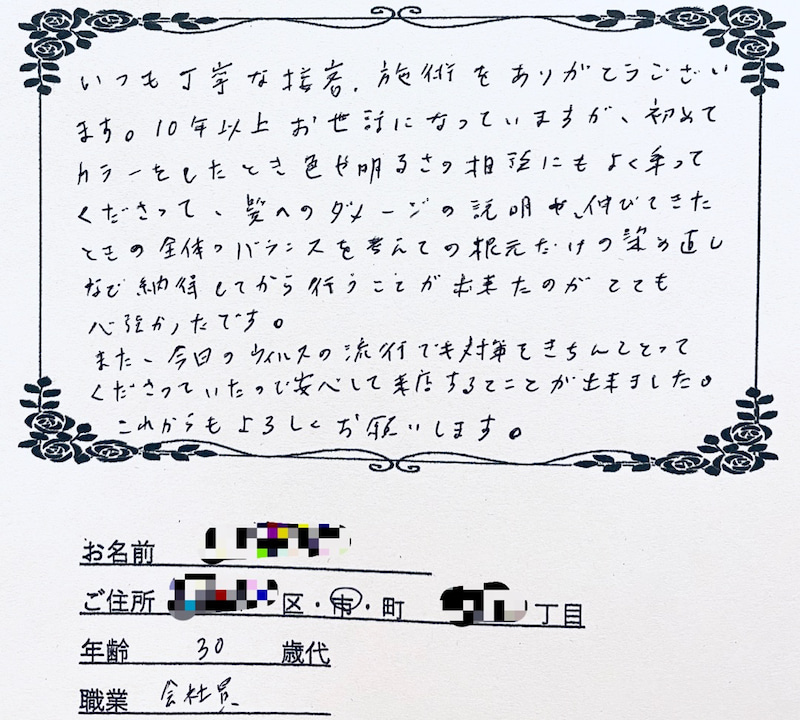 いつも丁寧な接客、施術をありがとうござい
ます。10年以上お世話になっていますが、初めて
カラーをしたとき色や明るさの相談にもよく乗って
くださって、髪へのダメージの説明や、伸びてきた
ときの全体のバランスを考えての根元だけの染め直し
など納得してから行うことが出来たのがとても
心強かったです。
また、今回のウィルスの流行でも対策をきちんととって
くださっていたので安心して来店することが出来ました。
これからもよろしくお願いします。
お名前
ご住所 区・市・町 丁目
年齢 30 歳代
職業 会社員